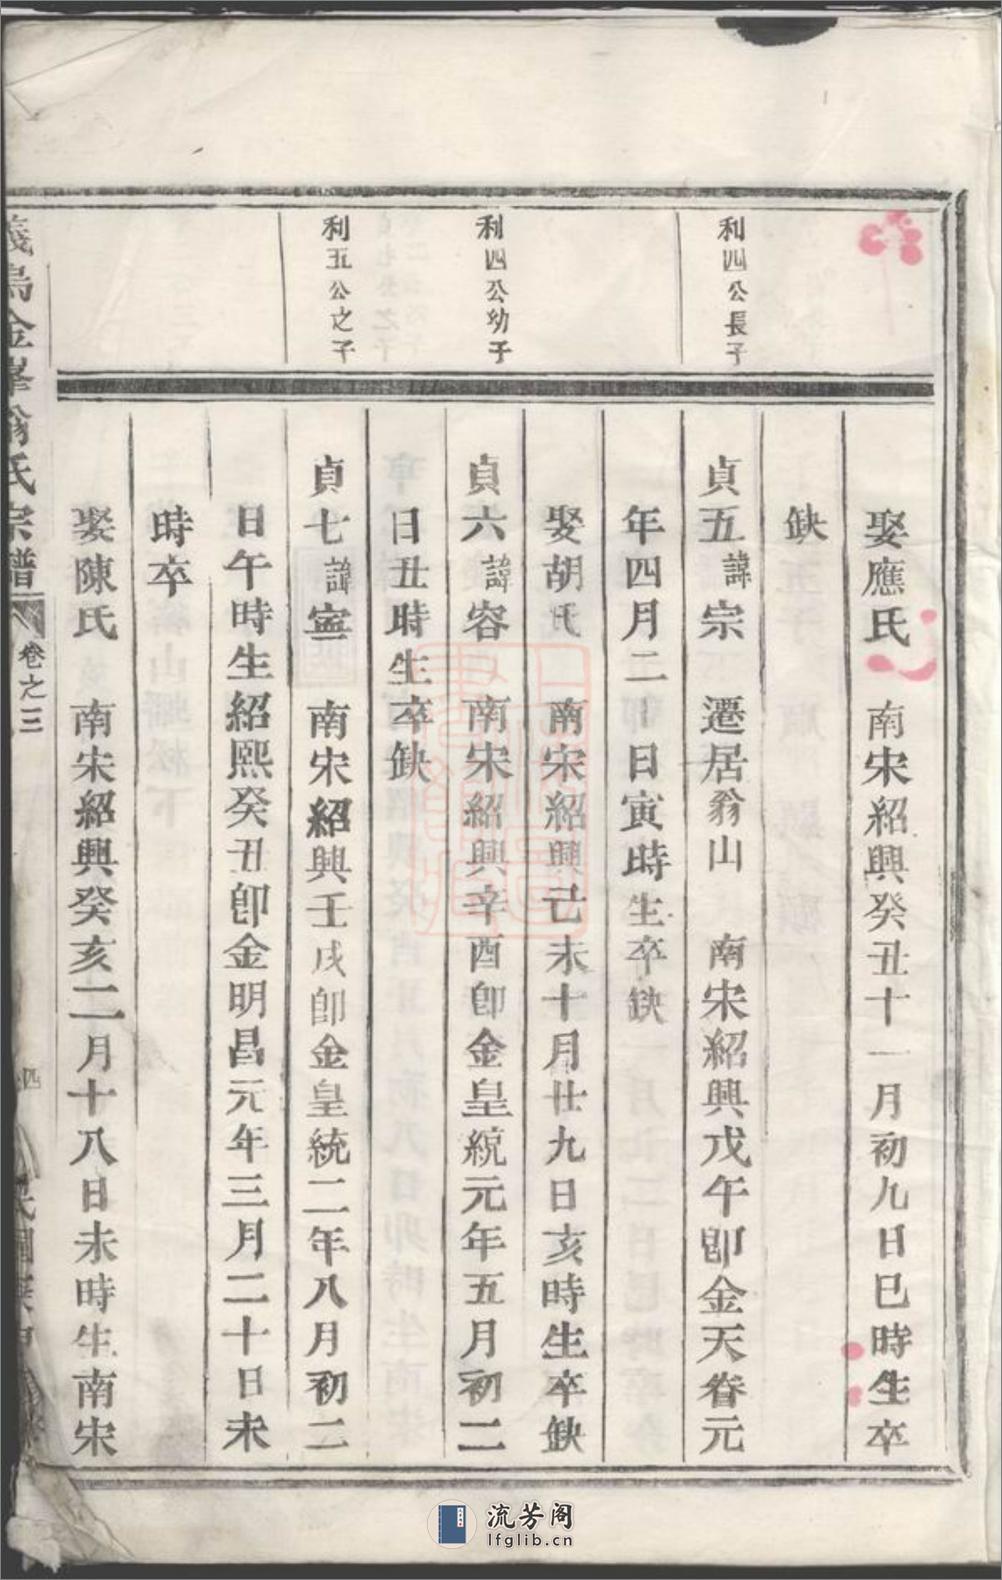 利四公長子
利四公幼子
利五公之子
娶應氏 南宋紹興癸丑十一月初九日巳時生卒
缺
貞五諱宗 遷居翁山 南宋紹興戊午卽金天眷元
年四月二十日寅時生卒缺
娶胡氏 南宋紹興己未十月廿九日亥時生卒缺
貞六諱容 南宋紹興辛酉卽金皇統元年五月初二
日丑時生卒缺
貞七諱寧 南宋紹興壬戌卽金皇統二年八月初二
日午時生紹熙癸丑卽金明昌元年三月二十日未
時卒
娶陳氏 南宋紹興癸亥二月十八日未時生南宋
義烏金峯翁氏宗譜 卷之三
四
流芳阁
lfglib.cn